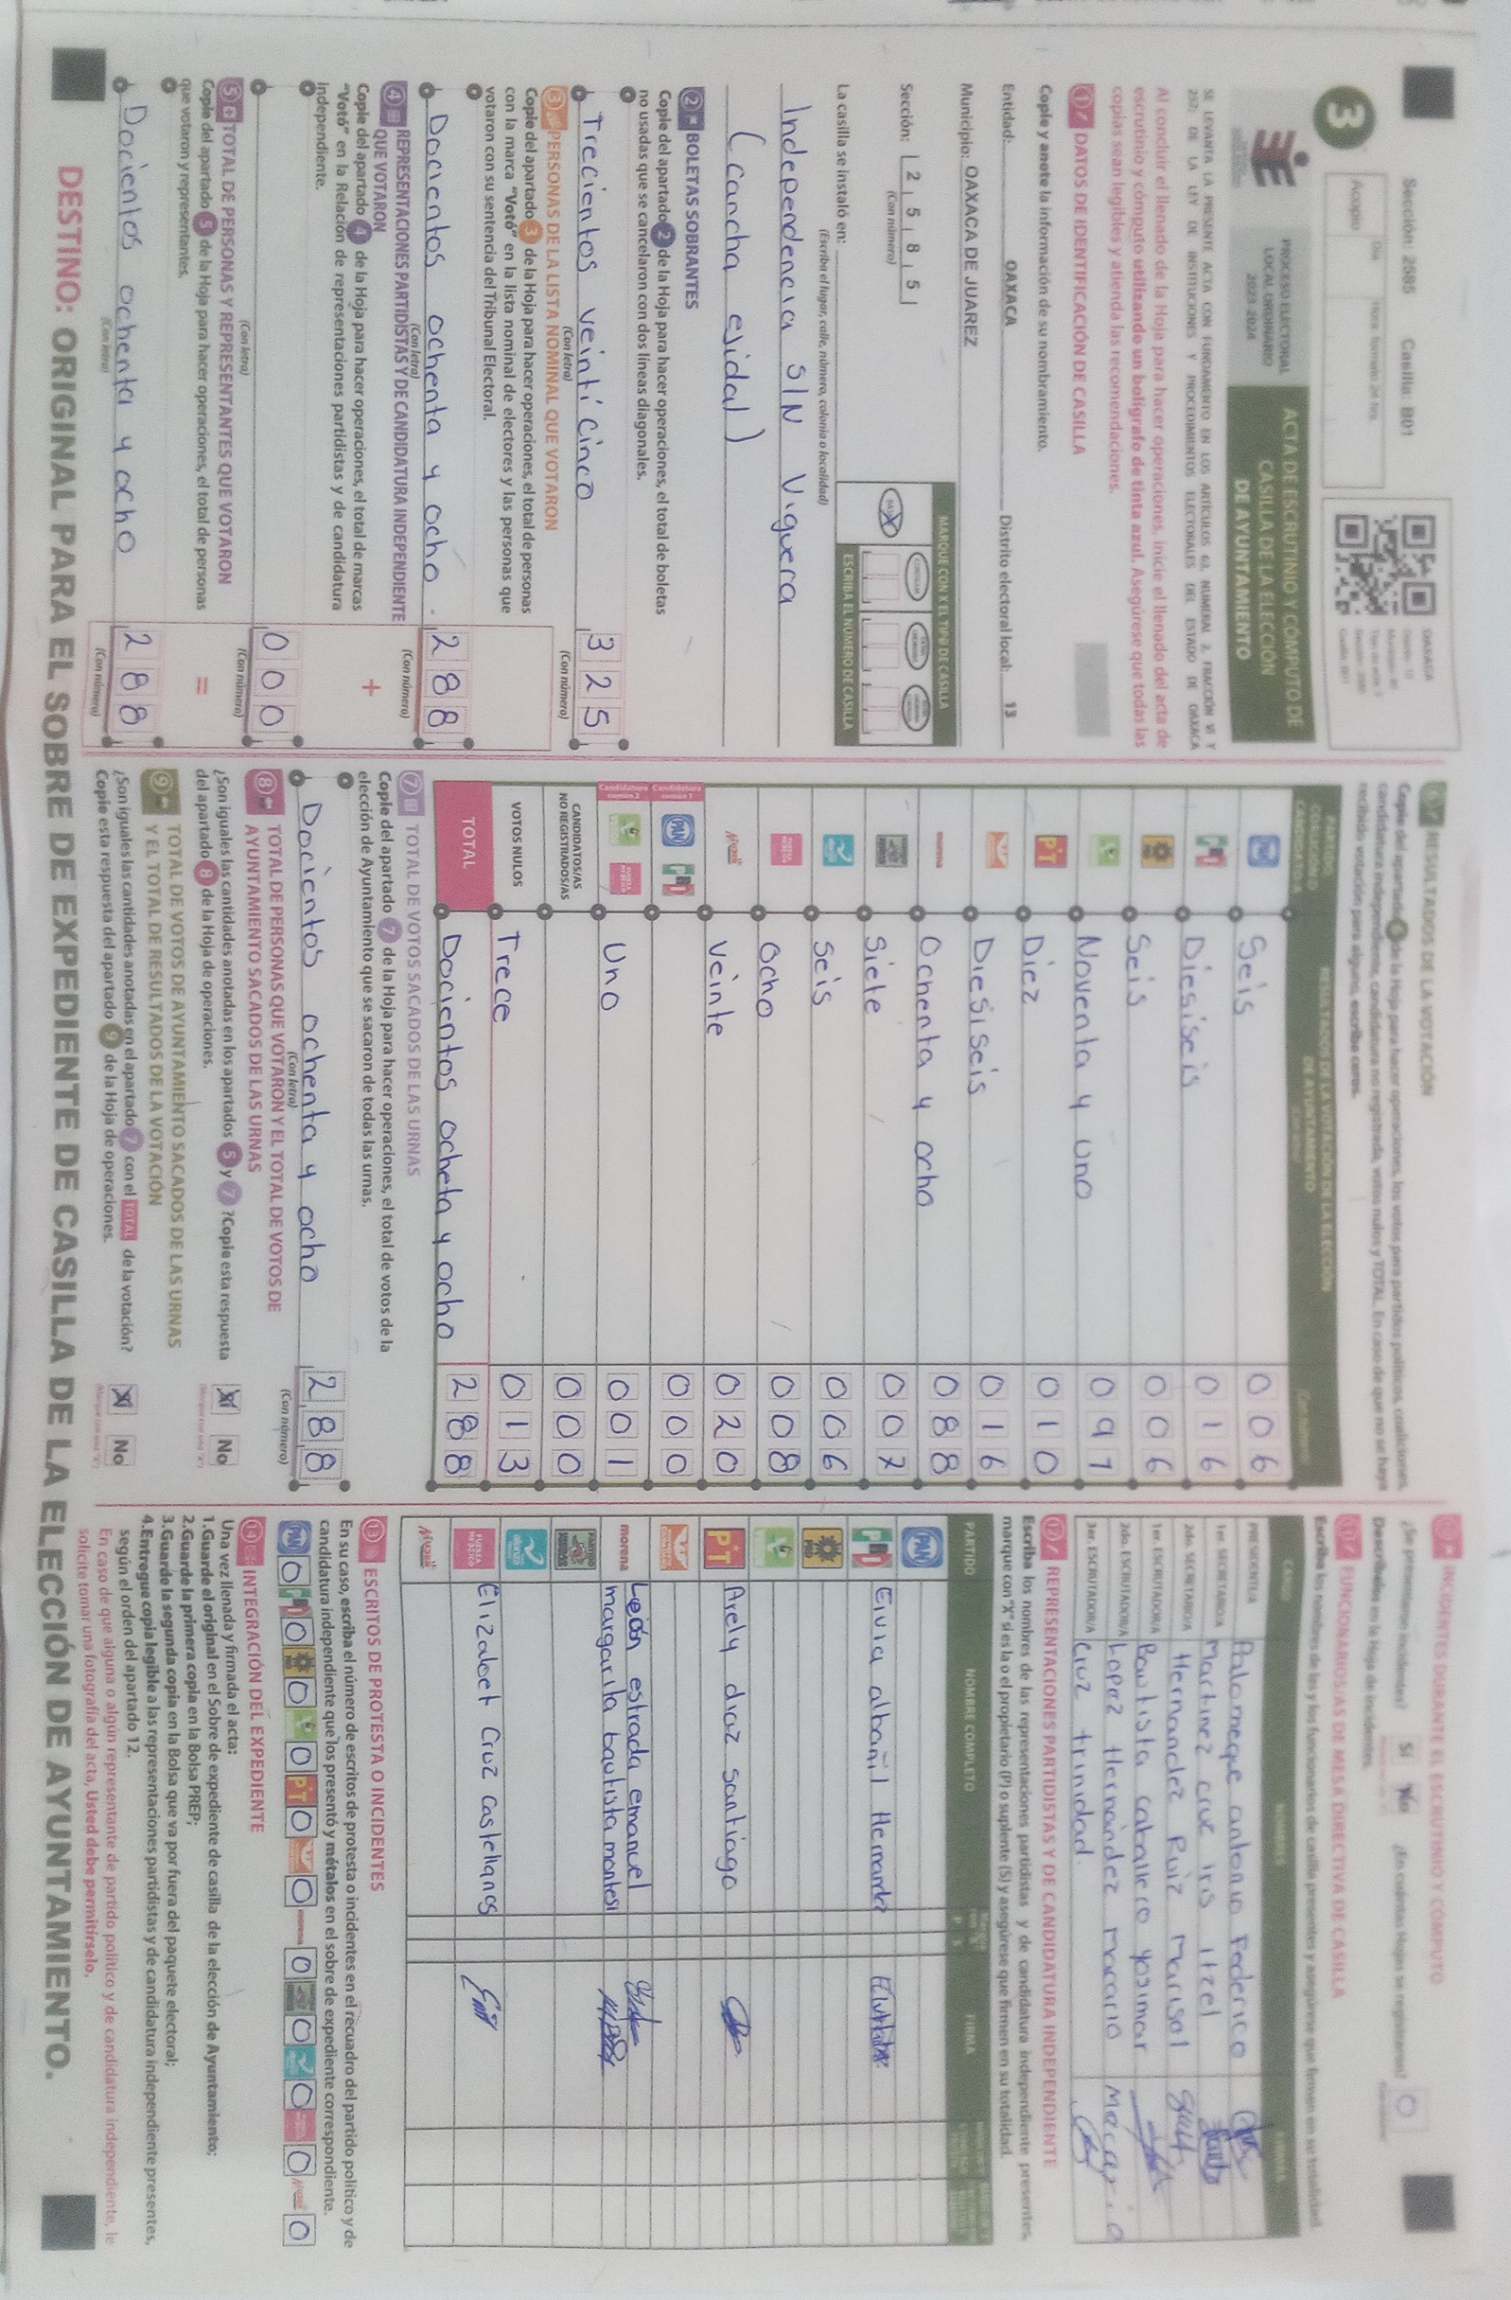 Sección: 2585 Casilla: B01
3
Acopio
Día
Hora: formato 24 hrs.
OAXACA
PROCESO ELECTORAL
LOCAL ORDINARIO
2023-2024
ACTA DE ESCRUTINIO Y CÓMPUTO DE
CASILLA DE LA ELECCIÓN
DE AYUNTAMIENTO
SE LEVANTA LA PRESENTE ACTA CON FUNDAMENTO EN LOS ARTÍCULOS 63, NUMERAL 2, FRACCIÓN VI Y
257; DE LA LEY DE INSTITUCIONES Y PROCEDIMIENTOS ELECTORALES DEL ESTADO DE OAXACA
Al concluir el llenado de la Hoja para hacer operaciones, inicie el llenado del acta de
escrutinio y cómputo utilizando un bolígrafo de tinta azul. Asegúrese que todas las
copias sean legibles y atienda las recomendaciones.
1 DATOS DE IDENTIFICACIÓN DE CASILLA
Copie y anote la información de su nombramiento.
Entidad: OAXACA Distrito electoral local: 13
Municipio: OAXACA DE JUAREZ
Sección: 2 5 8 5
(Con número)
MARQUE CON X EL TIPO DE CASILLA
ESCRIBA EL NÚMERO DE CASILLA
La casilla se instaló en:
(Escriba el lugar, calle, número, colonia o localidad)
Independencia S/N Viguera
(Cancha ejidal)
2 BOLETAS SOBRANTES
Copie del apartado 2 de la Hoja para hacer operaciones, el total de boletas
no usadas que se cancelaron con dos líneas diagonales.
Trecientos veinti cinco 3 2 5
(Con letra) (Con número)
3 PERSONAS DE LA LISTA NOMINAL QUE VOTARON
Copie del apartado 3 de la Hoja para hacer operaciones, el total de personas
con la marca "Votó" en la lista nominal de electores y las personas que
votaron con su sentencia del Tribunal Electoral.
Docientos ochenta y ocho. 2 8 8
(Con letra) (Con número)
4 REPRESENTACIONES PARTIDISTAS Y DE CANDIDATURA INDEPENDIENTE
QUE VOTARON
Copie del apartado 4 de la Hoja para hacer operaciones, el total de marcas
"Votó" en la Relación de representaciones partidistas y de candidatura
independiente.
+
0 0 0
(Con letra) (Con número)
5 TOTAL DE PERSONAS Y REPRESENTANTES QUE VOTARON
Copie del apartado 5 de la Hoja para hacer operaciones, el total de personas
que votaron y representantes.
=
Docientos ochenta y ocho 2 8 8
(Con letra) (Con número)
RESULTADOS DE LA VOTACIÓN
Copie del apartado 6 de la Hoja para hacer operaciones, los votos para partidos políticos, coaliciones,
candidatura independiente, candidatura no registrada, votos nulos y TOTAL. En caso de que no se haya
recibido votación para alguno, escriba ceros.
RESULTADOS DE LA VOTACIÓN DE LA ELECCIÓN
DE AYUNTAMIENTO
PAN Seis 0 0 6
PRI Diesiseis 0 1 6
PRD Seis 0 0 6
Noventa y uno 0 9 1
PT Diez 0 1 0
Diesiseis 0 1 6
morena Ochenta y ocho 0 8 8
Siete 0 0 7
Seis 0 0 6
Ocho 0 0 8
Veinte 0 2 0
Candidatura común 1
PAN PRI 0 0 0
Candidatura común 2
Uno 0 0 1
CANDIDATOS/AS
NO REGISTRADOS/AS 0 0 0
VOTOS NULOS Trece 0 1 3
TOTAL Docientos ocheta y ocho 2 8 8
7 TOTAL DE VOTOS SACADOS DE LAS URNAS
Copie del apartado 7 de la Hoja para hacer operaciones, el total de votos de la
elección de Ayuntamiento que se sacaron de todas las urnas.
Docientos ochenta y ocho 2 8 8
(Con letra) (Con número)
8 TOTAL DE PERSONAS QUE VOTARON Y EL TOTAL DE VOTOS DE
AYUNTAMIENTO SACADOS DE LAS URNAS
¿Son iguales las cantidades anotadas en los apartados 5 y 7 ?Copie esta respuesta
del apartado 8 de la Hoja de operaciones.
No
9 TOTAL DE VOTOS DE AYUNTAMIENTO SACADOS DE LAS URNAS
Y EL TOTAL DE RESULTADOS DE LA VOTACIÓN
¿Son iguales las cantidades anotadas en el apartado 7 con el TOTAL de la votación?
Copie esta respuesta del apartado 9 de la Hoja de operaciones.
No
INCIDENTES DURANTE EL ESCRUTINIO Y CÓMPUTO
¿Se presentaron incidentes? Sí No ¿En cuántas Hojas se registraron? 0
Descríbalos en la Hoja de incidentes.
FUNCIONARIOS/AS DE MESA DIRECTIVA DE CASILLA
Escriba los nombres de las y los funcionarios de casilla presentes y asegúrese que firmen en su totalidad.
CARGO NOMBRES FIRMAS
PRESIDENTE/A Palomeque antonio Federico
1er. SECRETARIO/A Martinez cruz Iris Itzel
2do. SECRETARIO/A Hernandez Ruiz Marisol
1er. ESCRUTADOR/A Bautista caballero yosimar
2do. ESCRUTADOR/A Lopez Hernández macario Macario
3er. ESCRUTADOR/A Cruz trinidad.
12 REPRESENTACIONES PARTIDISTAS Y DE CANDIDATURA INDEPENDIENTE
Escriba los nombres de las representaciones partidistas y de candidatura independiente presentes,
marque con "X" si es la o el propietario (P) o suplente (S) y asegúrese que firmen en su totalidad.
PARTIDO NOMBRE COMPLETO P S FIRMA
PAN
PRI Elvia albañil Hernandez
PRD
PT Arely diaz santiago
morena León estrada emanuel
margarita bautista montesi
Elizabeet Cruz Castellanos
13 ESCRITOS DE PROTESTA O INCIDENTES
En su caso, escriba el número de escritos de protesta o incidentes en el recuadro del partido político y de
candidatura independiente que los presentó y métalos en el sobre de expediente correspondiente.
PAN 0 PRI 0 PRD 0 0 PT 0 0 morena 0 0 0 0 0
14 INTEGRACIÓN DEL EXPEDIENTE
Una vez llenada y firmada el acta:
1.Guarde el original en el Sobre de expediente de casilla de la elección de Ayuntamiento;
2.Guarde la primera copia en la Bolsa PREP;
3.Guarde la segunda copia en la Bolsa que va por fuera del paquete electoral;
4.Entregue copia legible a las representaciones partidistas y de candidatura independiente presentes,
según el orden del apartado 12.
En caso de que alguna o algún representante de partido político y de candidatura independiente, le
solicite tomar una fotografía del acta, Usted debe permitírselo.
DESTINO: ORIGINAL PARA EL SOBRE DE EXPEDIENTE DE CASILLA DE LA ELECCIÓN DE AYUNTAMIENTO.